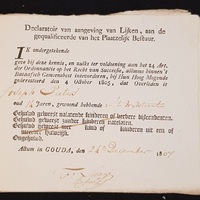 Declaratoir van aangeving van Lijken, aan de
gequalificeerde van het Plaatzelijk Bestuur.
IK ondergetekende
geve bij deze kennis, en zulks ter voldoening aan het 24 Art.
der Ordonnantie op het Recht van Successie, alomme binnen't
Bataafsch Gemeenebest intevorderen, bij Hun Hoog Mogende
gearresteerd den 4 October 1805, dat Overleden is
Joseph
oud Jaren, gewoond hebbende
Gehuwd geweest nalatende kinderen of verdere descendenten.
Gehuwd geweest zonder kinderen natelaten.
Gehuwd geweest met kind of kinderen uit een
vroeger Huwelijk.
Ongehuwd.
Actum in GOUDA, den December 1807